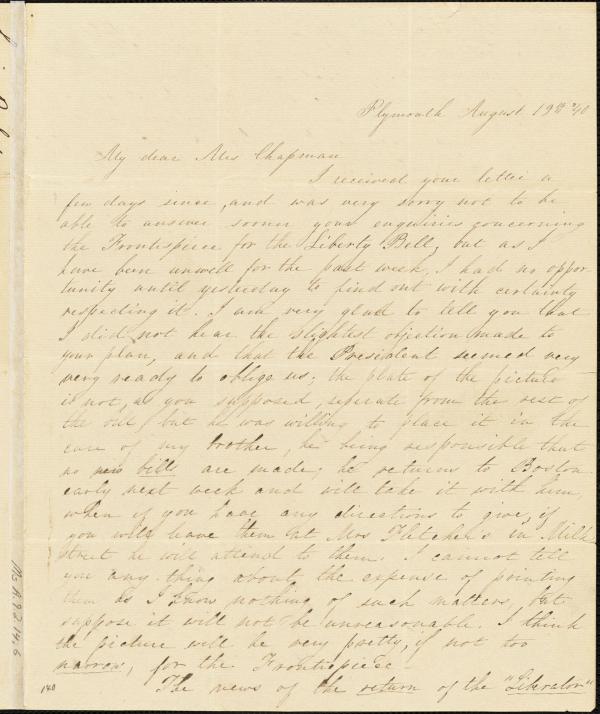 Plymouth August 19th /40
My dear Mrs Chapman
I received your letter a
few days since, and was very sorry not to be
able to answer sooner your enquiries concerning
the Frontispiece for the Liberty Bell, but as I
have been unwell for the past week, I had no oppor
tunity until yesterday to find out with certainty
respecting it. I am very glad to tell you that
I did not hear the slightest objection made to
your plan, and that the President seemed very
very ready to oblige us; the plate of the picture
is not, as you supposed, seperate from the rest of
the but he was willing to place it in the
care of my brother, he being responsible that
no new bills are made; he returns to Boston
early next week and will take it with him,
when if you have any directions to give, if
you will leave them at Mrs Fletcher's in Milk
street he will attend to them. I cannot tell
you any thing about the expense of printing
them as I know nothing of such matters, but
suppose it will not be unreasonable. I think
the picture will be very pretty, if not too
narrow, for the Frontispiece
The news of the return of the "Liberator"
140
Ms.A.9.2.14.6